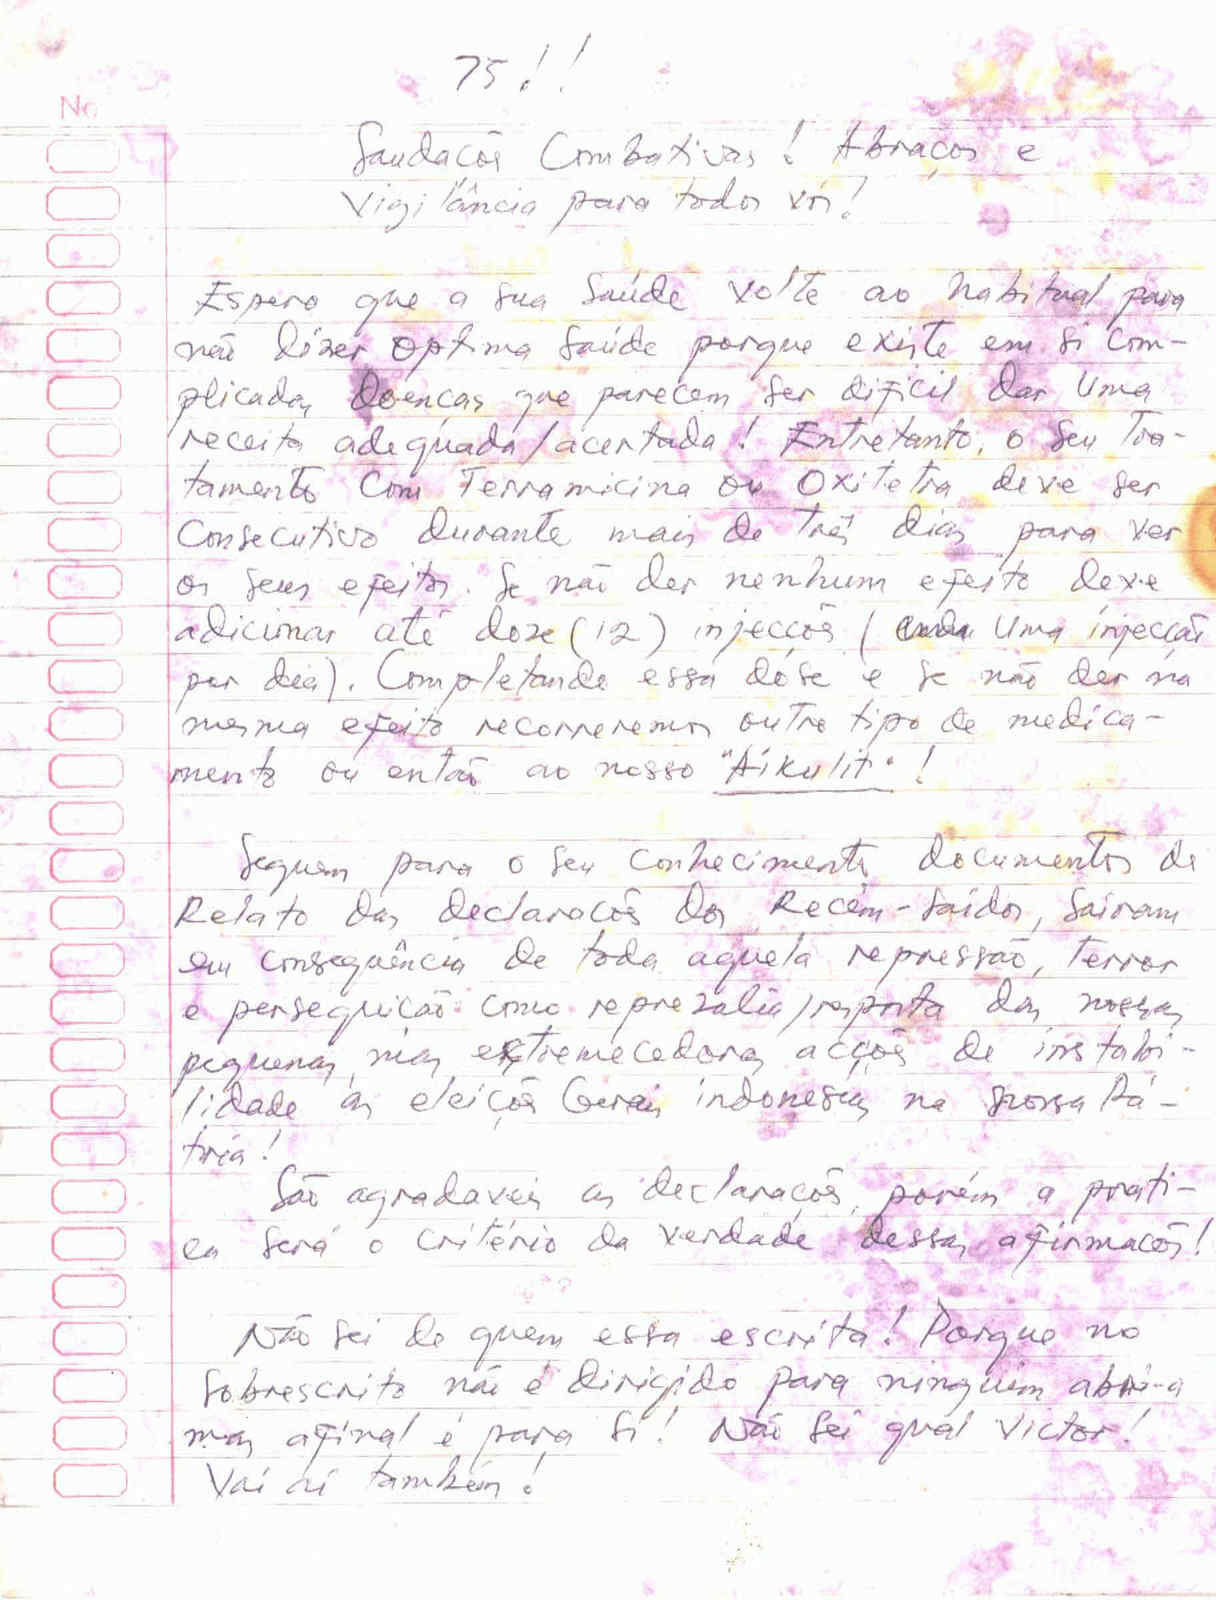 75!!
Saudações Combativas! Abraços e
Vigilância para todos vós!
Espero que a sua saúde volte ao habitual para
não dizer optima saúde porque existe em si com-
plicadas doenças que parecem ser dificil dar uma
receita adequada/acertada! Entretanto, o seu tra-
tamento com Terramicina ou Oxitetra deve ser
consecutivo durante mais de três dias para ver
os seus efeitos. Se não der nenhum efeito deve
adicionar até doze (12) injecções ( uma injecção
por dia). Completando essa dóse e se não der na
mesma efeito recorreremos outro tipo de medica-
mento ou então ao nosso "Aikulit"!
Seguem para o seu conhecimento documentos de
Relato das declarações dos Recém-Saídos, sairam
em consequência de toda aquela repressão, terror
e perseguição como reprezália/resposta das nossas
pequenas, mas extremecedoras acções de instabi-
lidade às eleições Gerais indonesias na nossa Pá-
tria!
São agradaveis as declarações, porém a prati-
ca será o critério da verdade dessas afirmações!
Não sei de quem essa escrita! Porque no
sobrescrito não é dirigido para ninguém abri-a
mas afinal é para si! Não sei qual Victor!
Vai aí também!
No